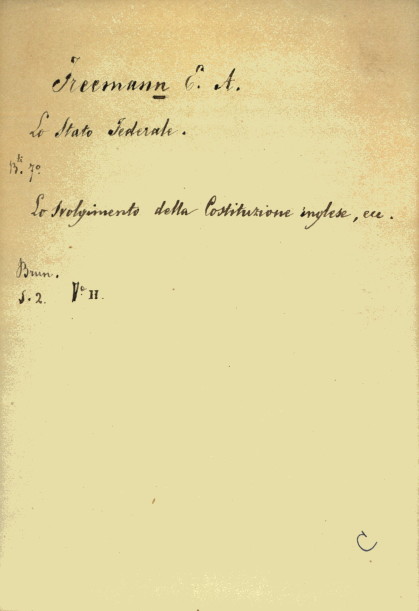 Freemann E. A.
Lo Stato Federale.
Bk. 7º
Lo Svolgimento della Costituzione inglese, ecc.
Brun.
S. 2. Vº H.
C